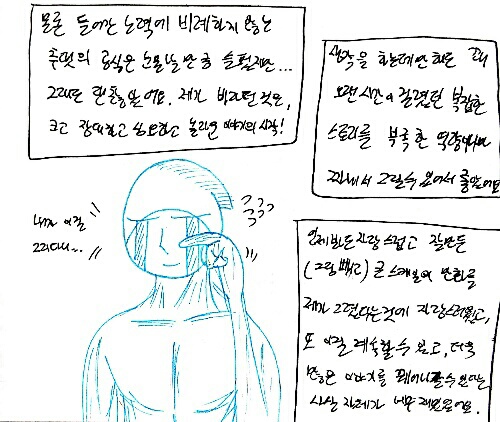 물론 들어간 노력에 비례하지 않는
추천의 공식은 눈물날 만큼 슬펐지만...
그래도 괜찮았어요. 제가 바라던 것은,
크고 장대하고 심오하고 놀라운 이야기의 시작!
생각을 하는데만 해도 꽤
오랜시간이 걸렸던 복잡한
스토리를 부족한 역량이나마
짜내서 그릴수 있어서 좋았어요
내가 이걸
그리다니...
언제봐도 자랑스럽고 잘만든
(그림 빼고) 큰 스케일의 만화를
제가 그렸다는것에 자랑스러웠고,
또 이걸 계속할수 있고, 더욱
많은 이야기를 풀어나갈수 있다는
사실 자체가 너무 재밌어요.